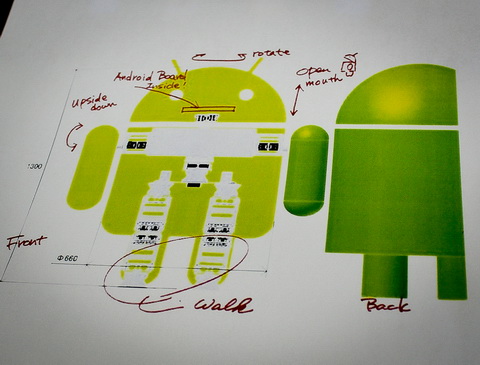 rotate
Android Board
Inside!
Open
mouth
Upside
down
1300
Front
Φ660
Walk
Back